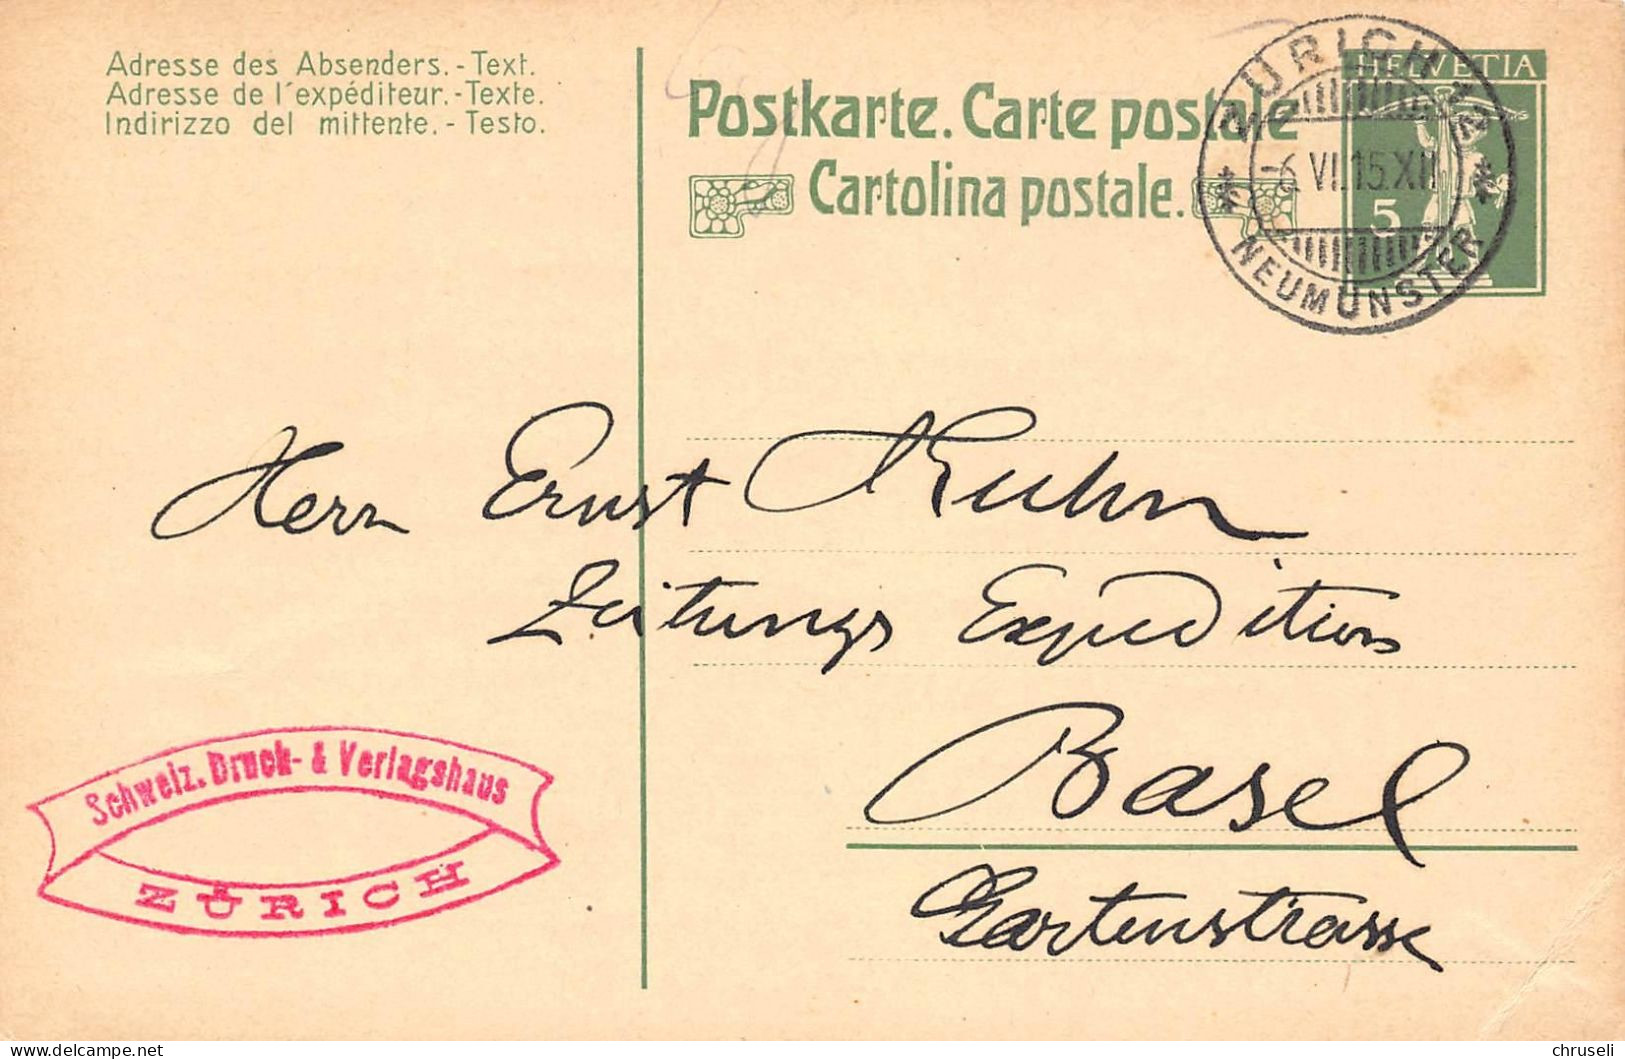 Adresse des Absenders. - Text.
Adresse de l'expéditeur. - Texte.
Indirizzo del mittente. - Testo.
Postkarte. Carte postale
Cartolina postale.
HELVETIA
5
ZÜRICH 12
6.VI.15.XII
NEUMÜNSTER
Herrn Ernst Kuhn
Zeitungs Expedition
Basel
Gartenstrasse
Schweiz. Druck- & Verlagshaus
ZÜRICH
delcampe.net
chruseli